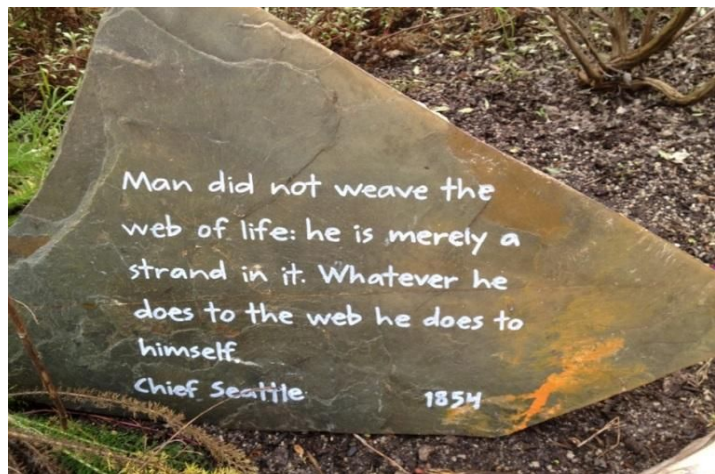 Man did not weave the
web of life: he is merely a
strand in it. Whatever he
does to the web he does to
himself.
Chief Seattle 1854